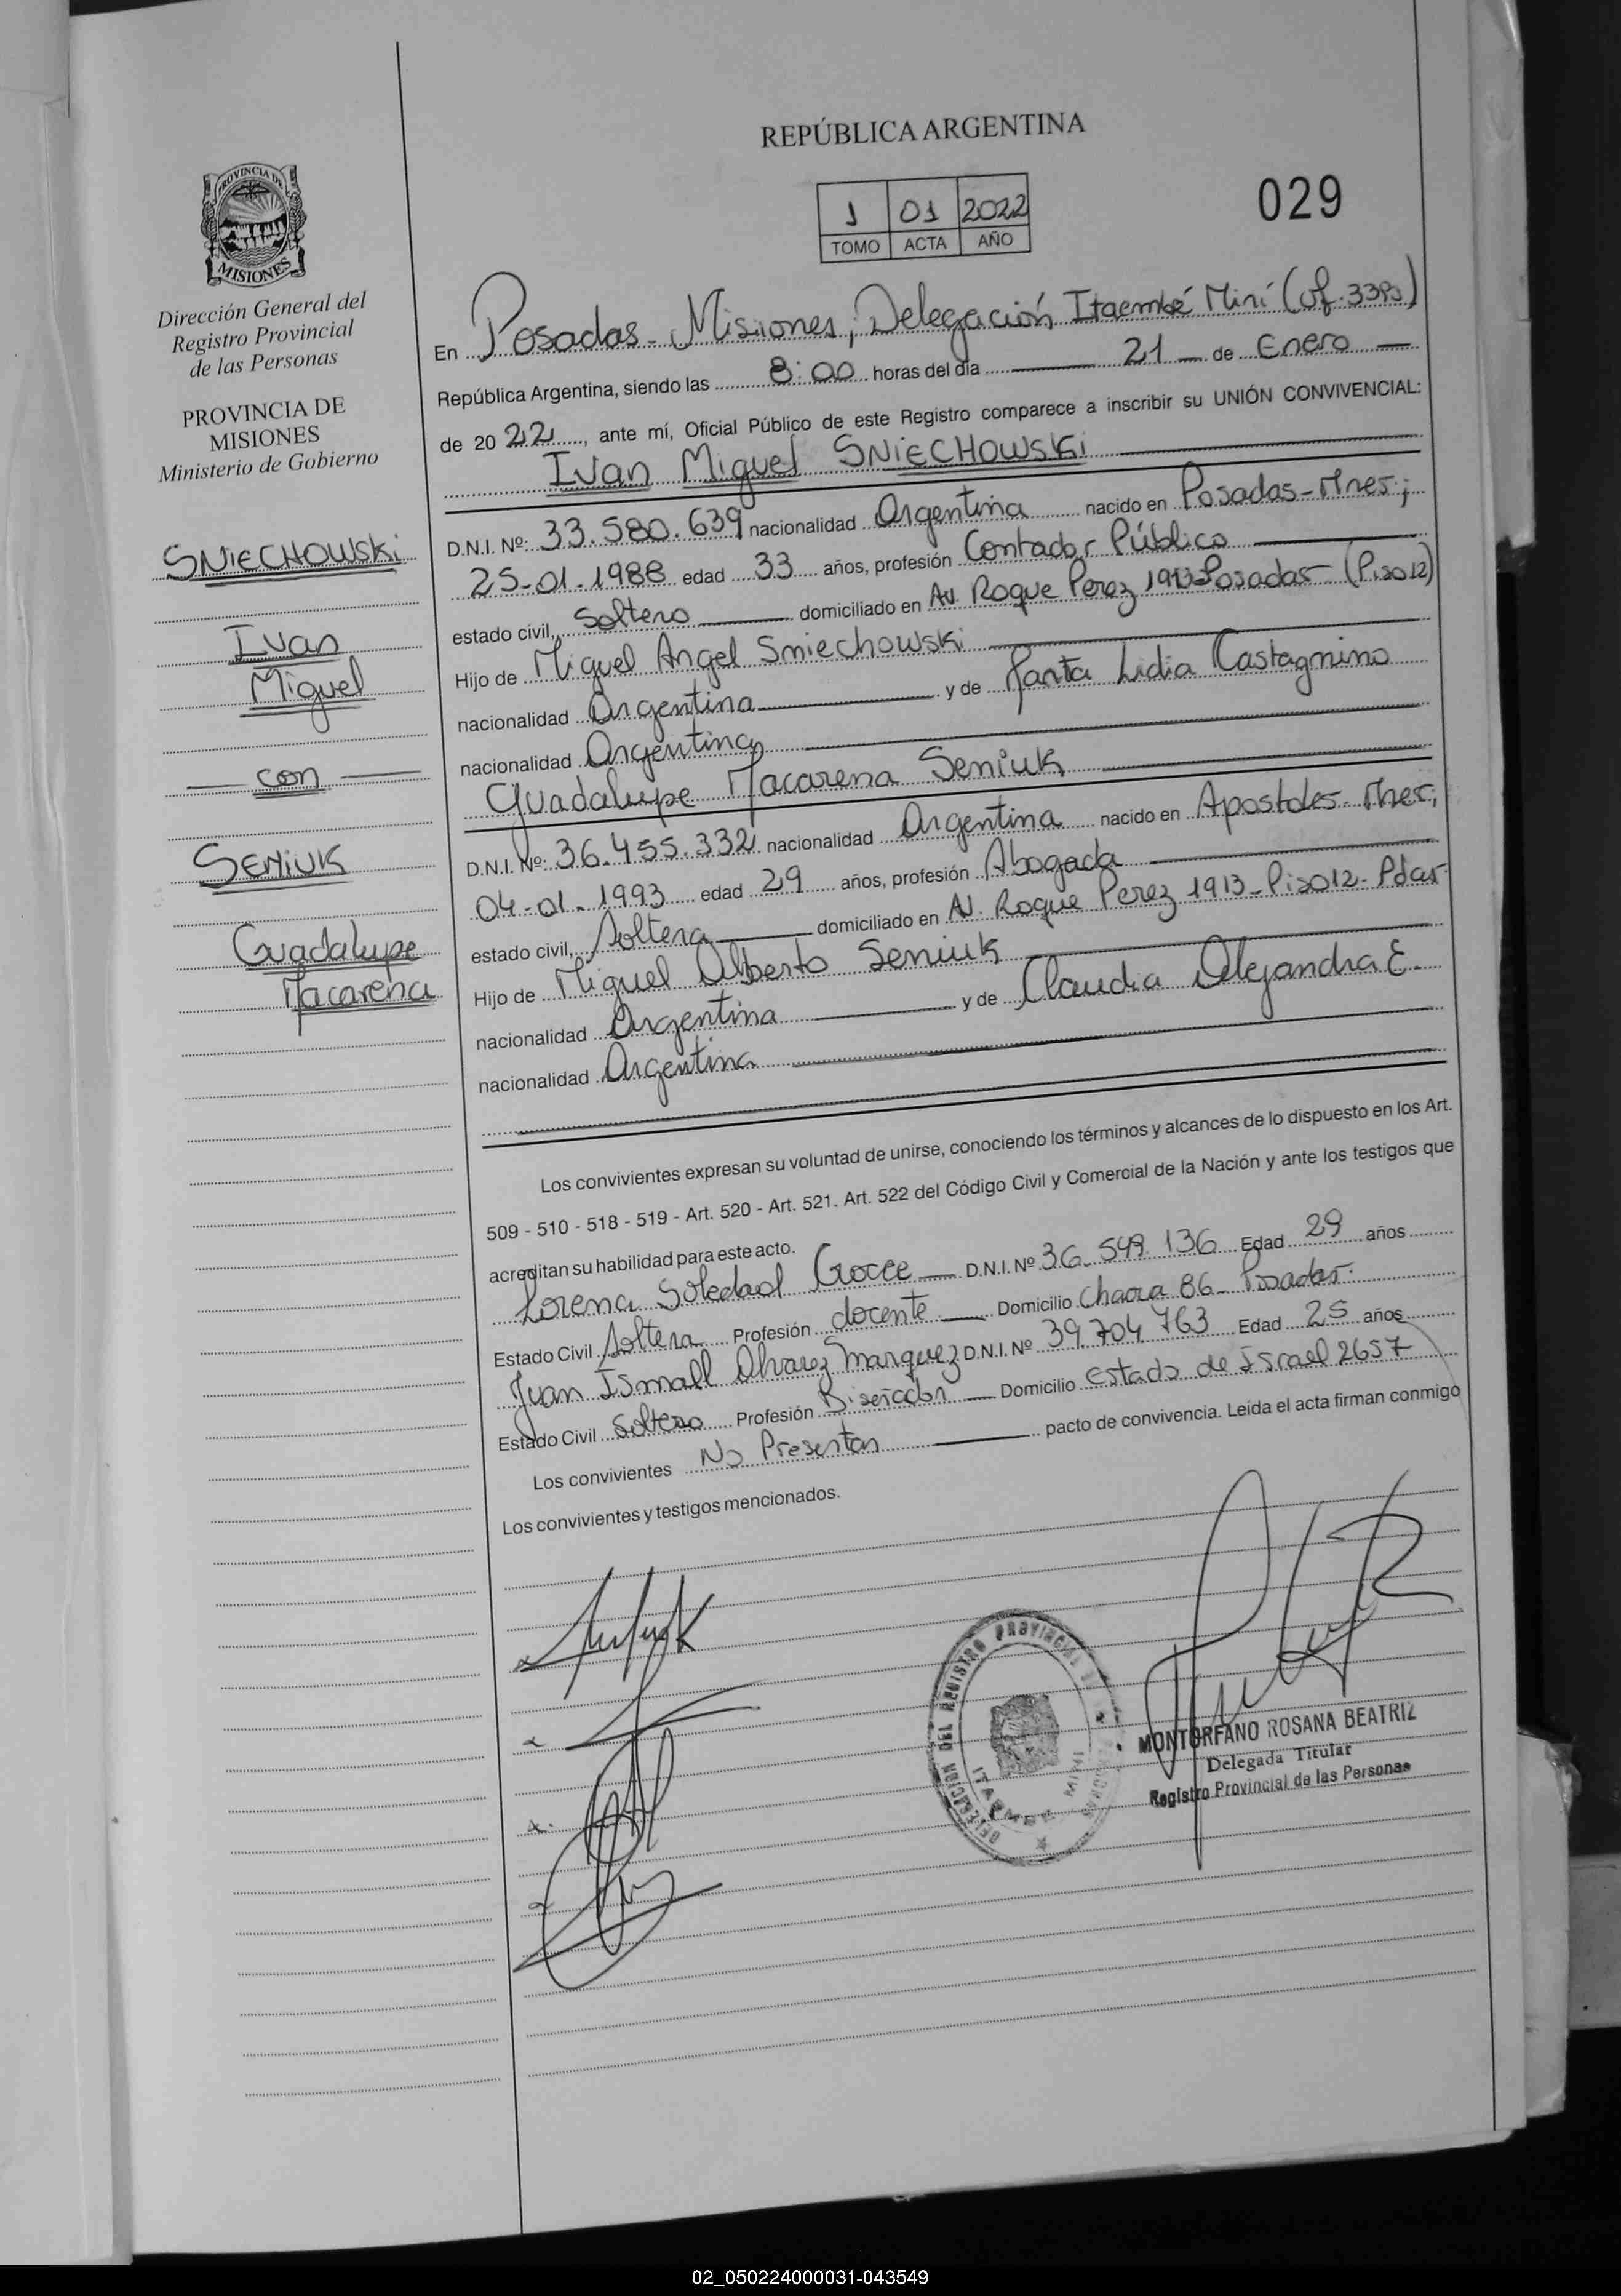 REPÚBLICA ARGENTINA
PROVINCIA DE
MISIONES
1 01 2022
TOMO ACTA AÑO
029
Dirección General del
Registro Provincial
de las Personas
PROVINCIA DE
MISIONES
Ministerio de Gobierno
SNIECHOWSKI
Ivan
Miguel
con
SENIUK
Guadalupe
Macarena
En Posadas - Misiones, Delegación Itaembé Miní (Of. 3393)
República Argentina, siendo las 8:00 horas del día 21 de Enero
de 2022, ante mí, Oficial Público de este Registro comparece a inscribir su UNIÓN CONVIVENCIAL:
Ivan Miguel SNIECHOWSKI
D.N.I. Nº: 33.580.639 nacionalidad Argentina nacido en Posadas-Mnes;
25-01-1988 edad 33 años, profesión Contador Público
estado civil, Soltero domiciliado en Av. Roque Perez 1913-Posadas- (Piso 12)
Hijo de Miguel Angel Sniechowski
nacionalidad Argentina y de Marta Lidia Castagnino
nacionalidad Argentina
Guadalupe Macarena Seniuk
D.N.I. Nº: 36.455.332 nacionalidad Argentina nacido en Apostoles-Mnes;
04-01-1993 edad 29 años, profesión Abogada
estado civil, Soltera domiciliado en Av. Roque Perez 1913-Piso 12- Pdas-
Hijo de Miguel Alberto Seniuk
nacionalidad Argentina y de Claudia Alejandra E.
nacionalidad Argentina
Los convivientes expresan su voluntad de unirse, conociendo los términos y alcances de lo dispuesto en los Art.
509 - 510 - 518 - 519 - Art. 520 - Art. 521. Art. 522 del Código Civil y Comercial de la Nación y ante los testigos que
acreditan su habilidad para este acto.
Lorena Soledad Croce D.N.I. Nº 36.549.136 Edad 29 años
Estado Civil Soltera Profesión docente Domicilio Chacra 86- Posadas.
Juan Ismall Alvarez Marquez D.N.I. Nº 39.704.763 Edad 25 años
Estado Civil Soltero Profesión Diseñador Domicilio Estado de Israel 2657
Los convivientes No Presentan pacto de convivencia. Leída el acta firman conmigo
Los convivientes y testigos mencionados.
DELEGACION DEL REGISTRO PROVINCIAL
ITAEMBE MINI
MONTORFANO ROSANA BEATRIZ
Delegada Titular
Registro Provincial de las Personas
02_050224000031-043549